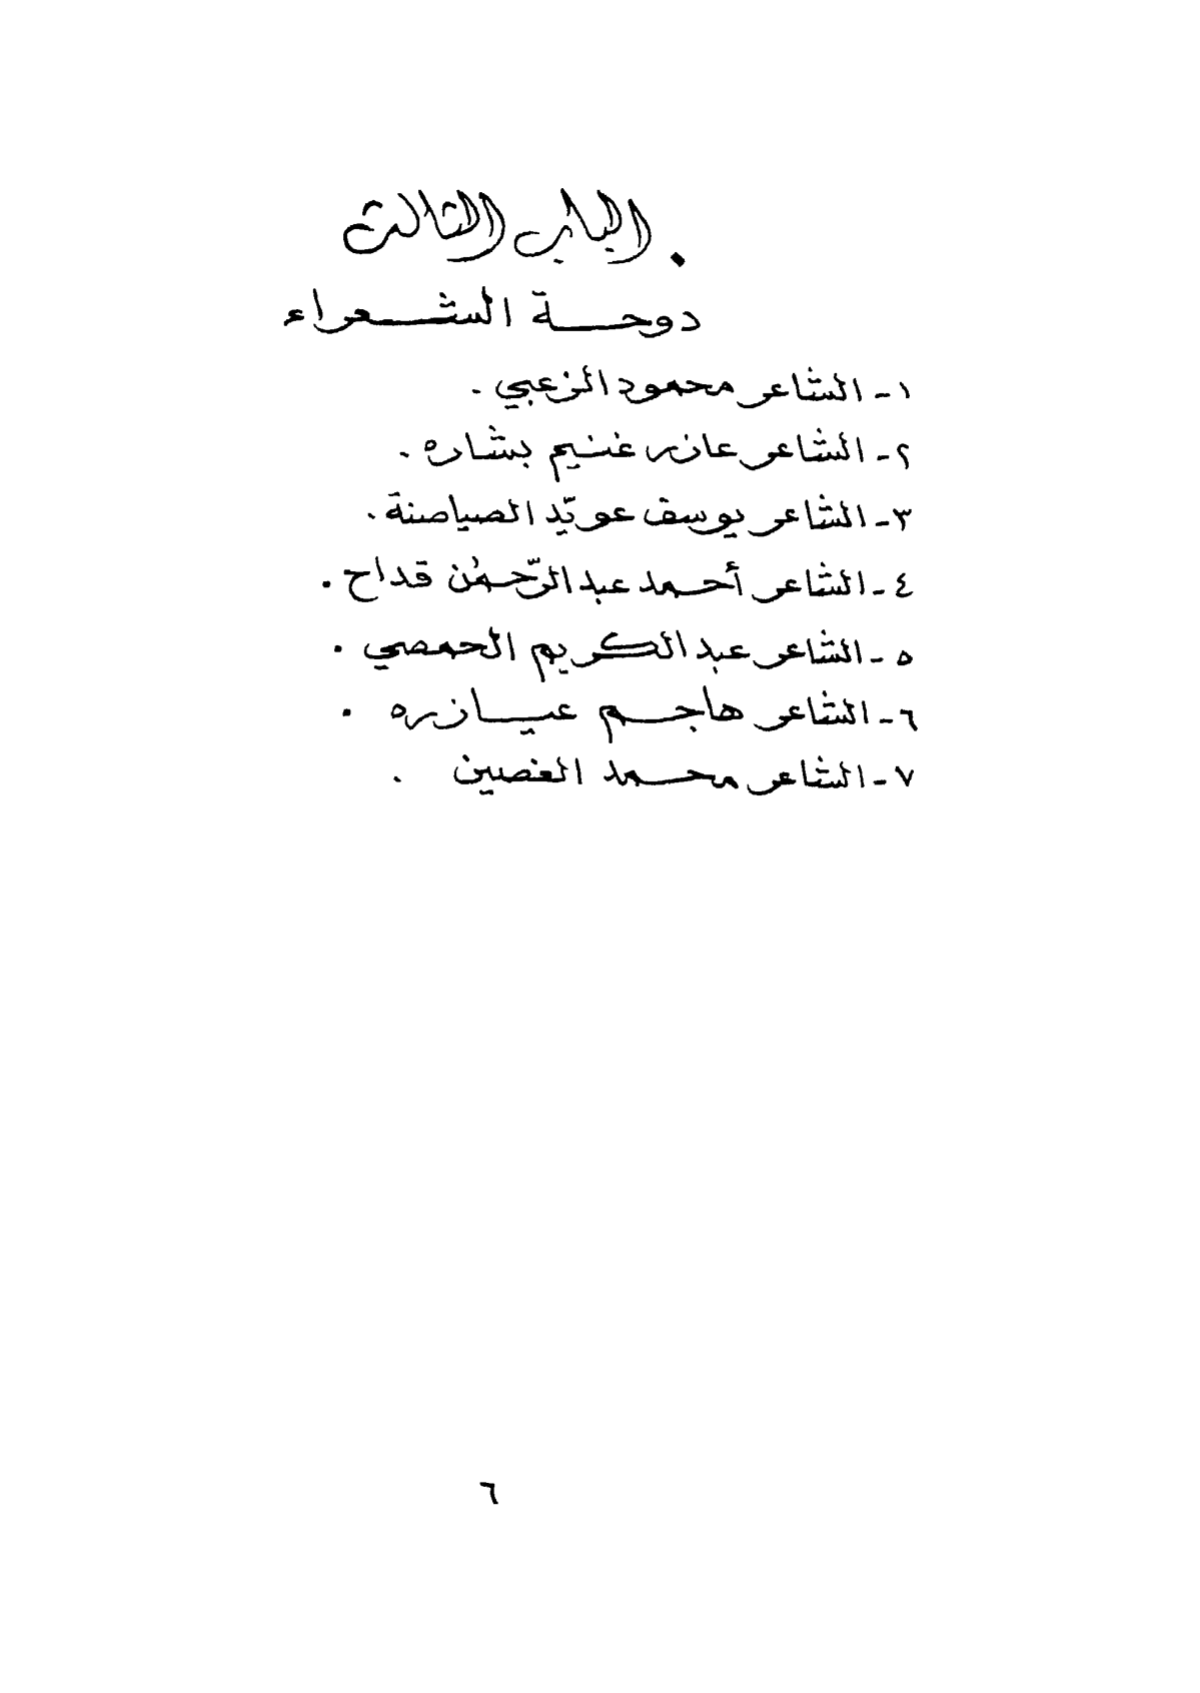 الباب الثالث
دوحة الشعراء
١- الشاعر محمود الزعبي .
٢- الشاعر عازر غنيم بشاره .
٣- الشاعر يوسف عويّد الصياصنة .
٤- الشاعر أحمد عبد الرّحمٰن قداح .
٥- الشاعر عبد الكريم الحمصي .
٦- الشاعر هاجم عيازره .
٧- الشاعر محمد الغصين .
٦